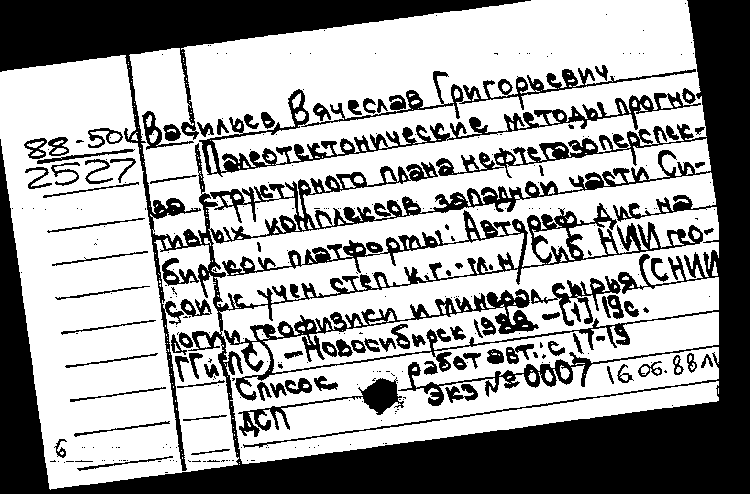 88-50к
2527
Васильев, Вячеслав Григорьевич.
Палеотектонические методы прогно-
за структурного плана нефтегазоперспек-
тивных комплексов западной части Си-
бирской платформы: Автореф. дис. на
соиск. учен. степ. к.г.-м.н / Сиб. НИИ гео-
логии, геофизики и минерал. сырья (СНИИ
ГГиМС). - Новосибирск, 1988. - [1], 19с.
Список работ авт.: с. 17-19
ДСП Экз № 0007 16.06.88
6